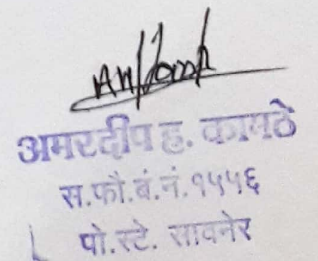 अमरदीप ह. कामठे
स.फौ.बं.नं.१५५६
पो.स्टे. सावनेर